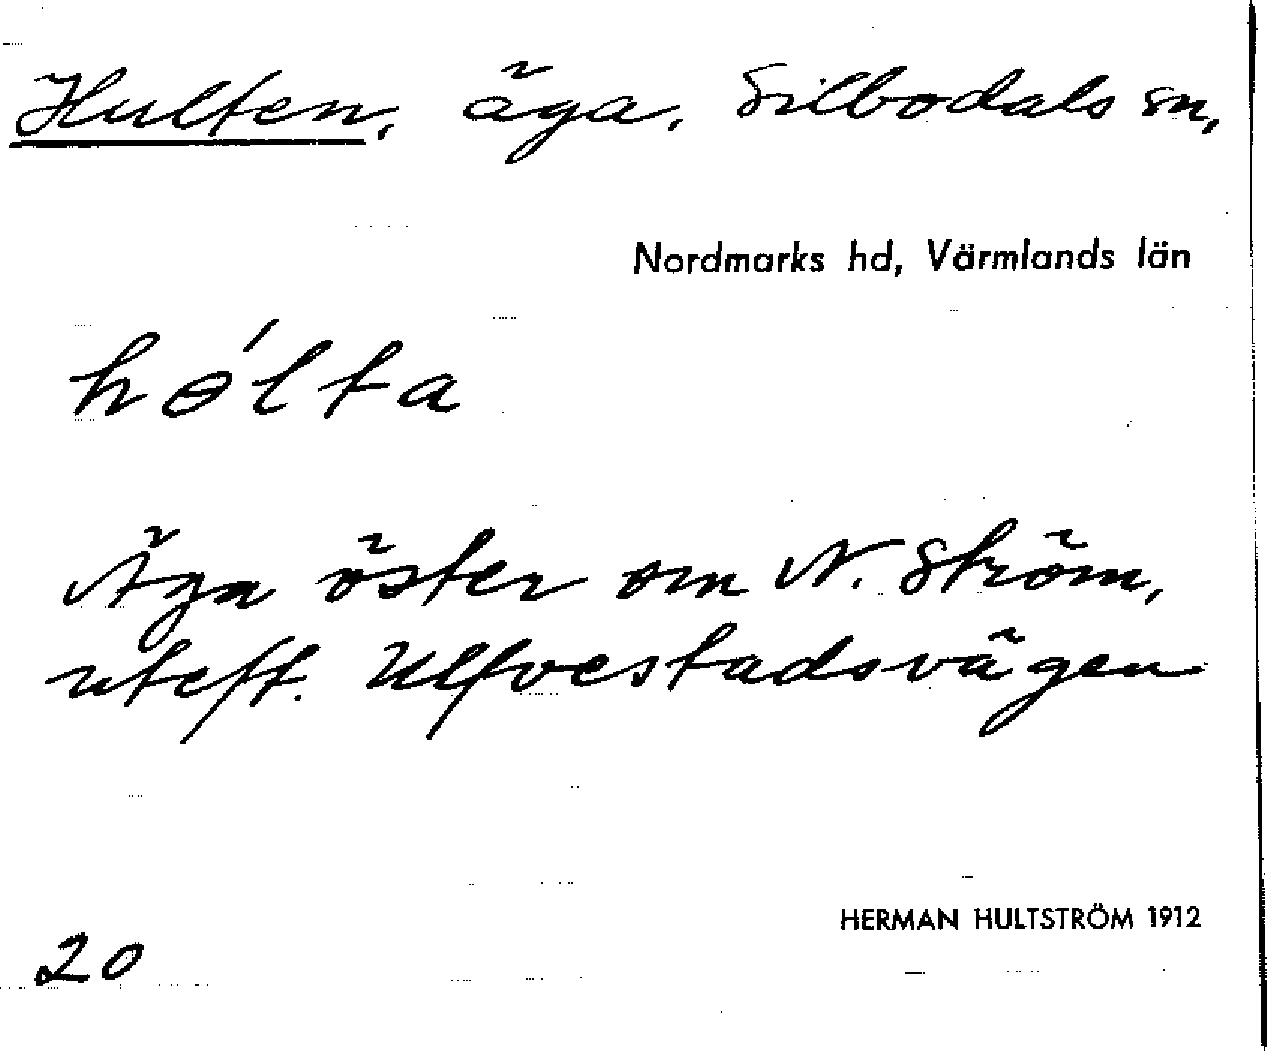 Hulten, äga, Silbodals sn,
Nordmarks hd, Värmlands län
hɵ́lta
Äga öster om N. Ström,
uteft. Ulfvestadsvägen
HERMAN HULTSTRÖM 1912
20